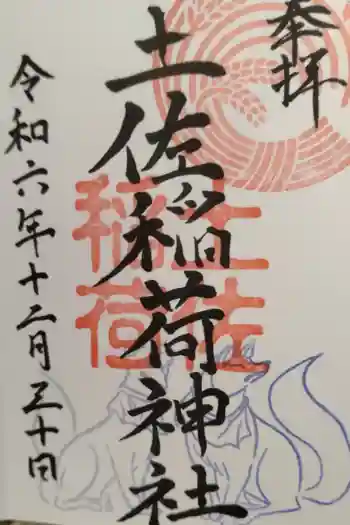 奉拝
土佐稲荷神社
土佐
稲荷
令和六年十二月三十日